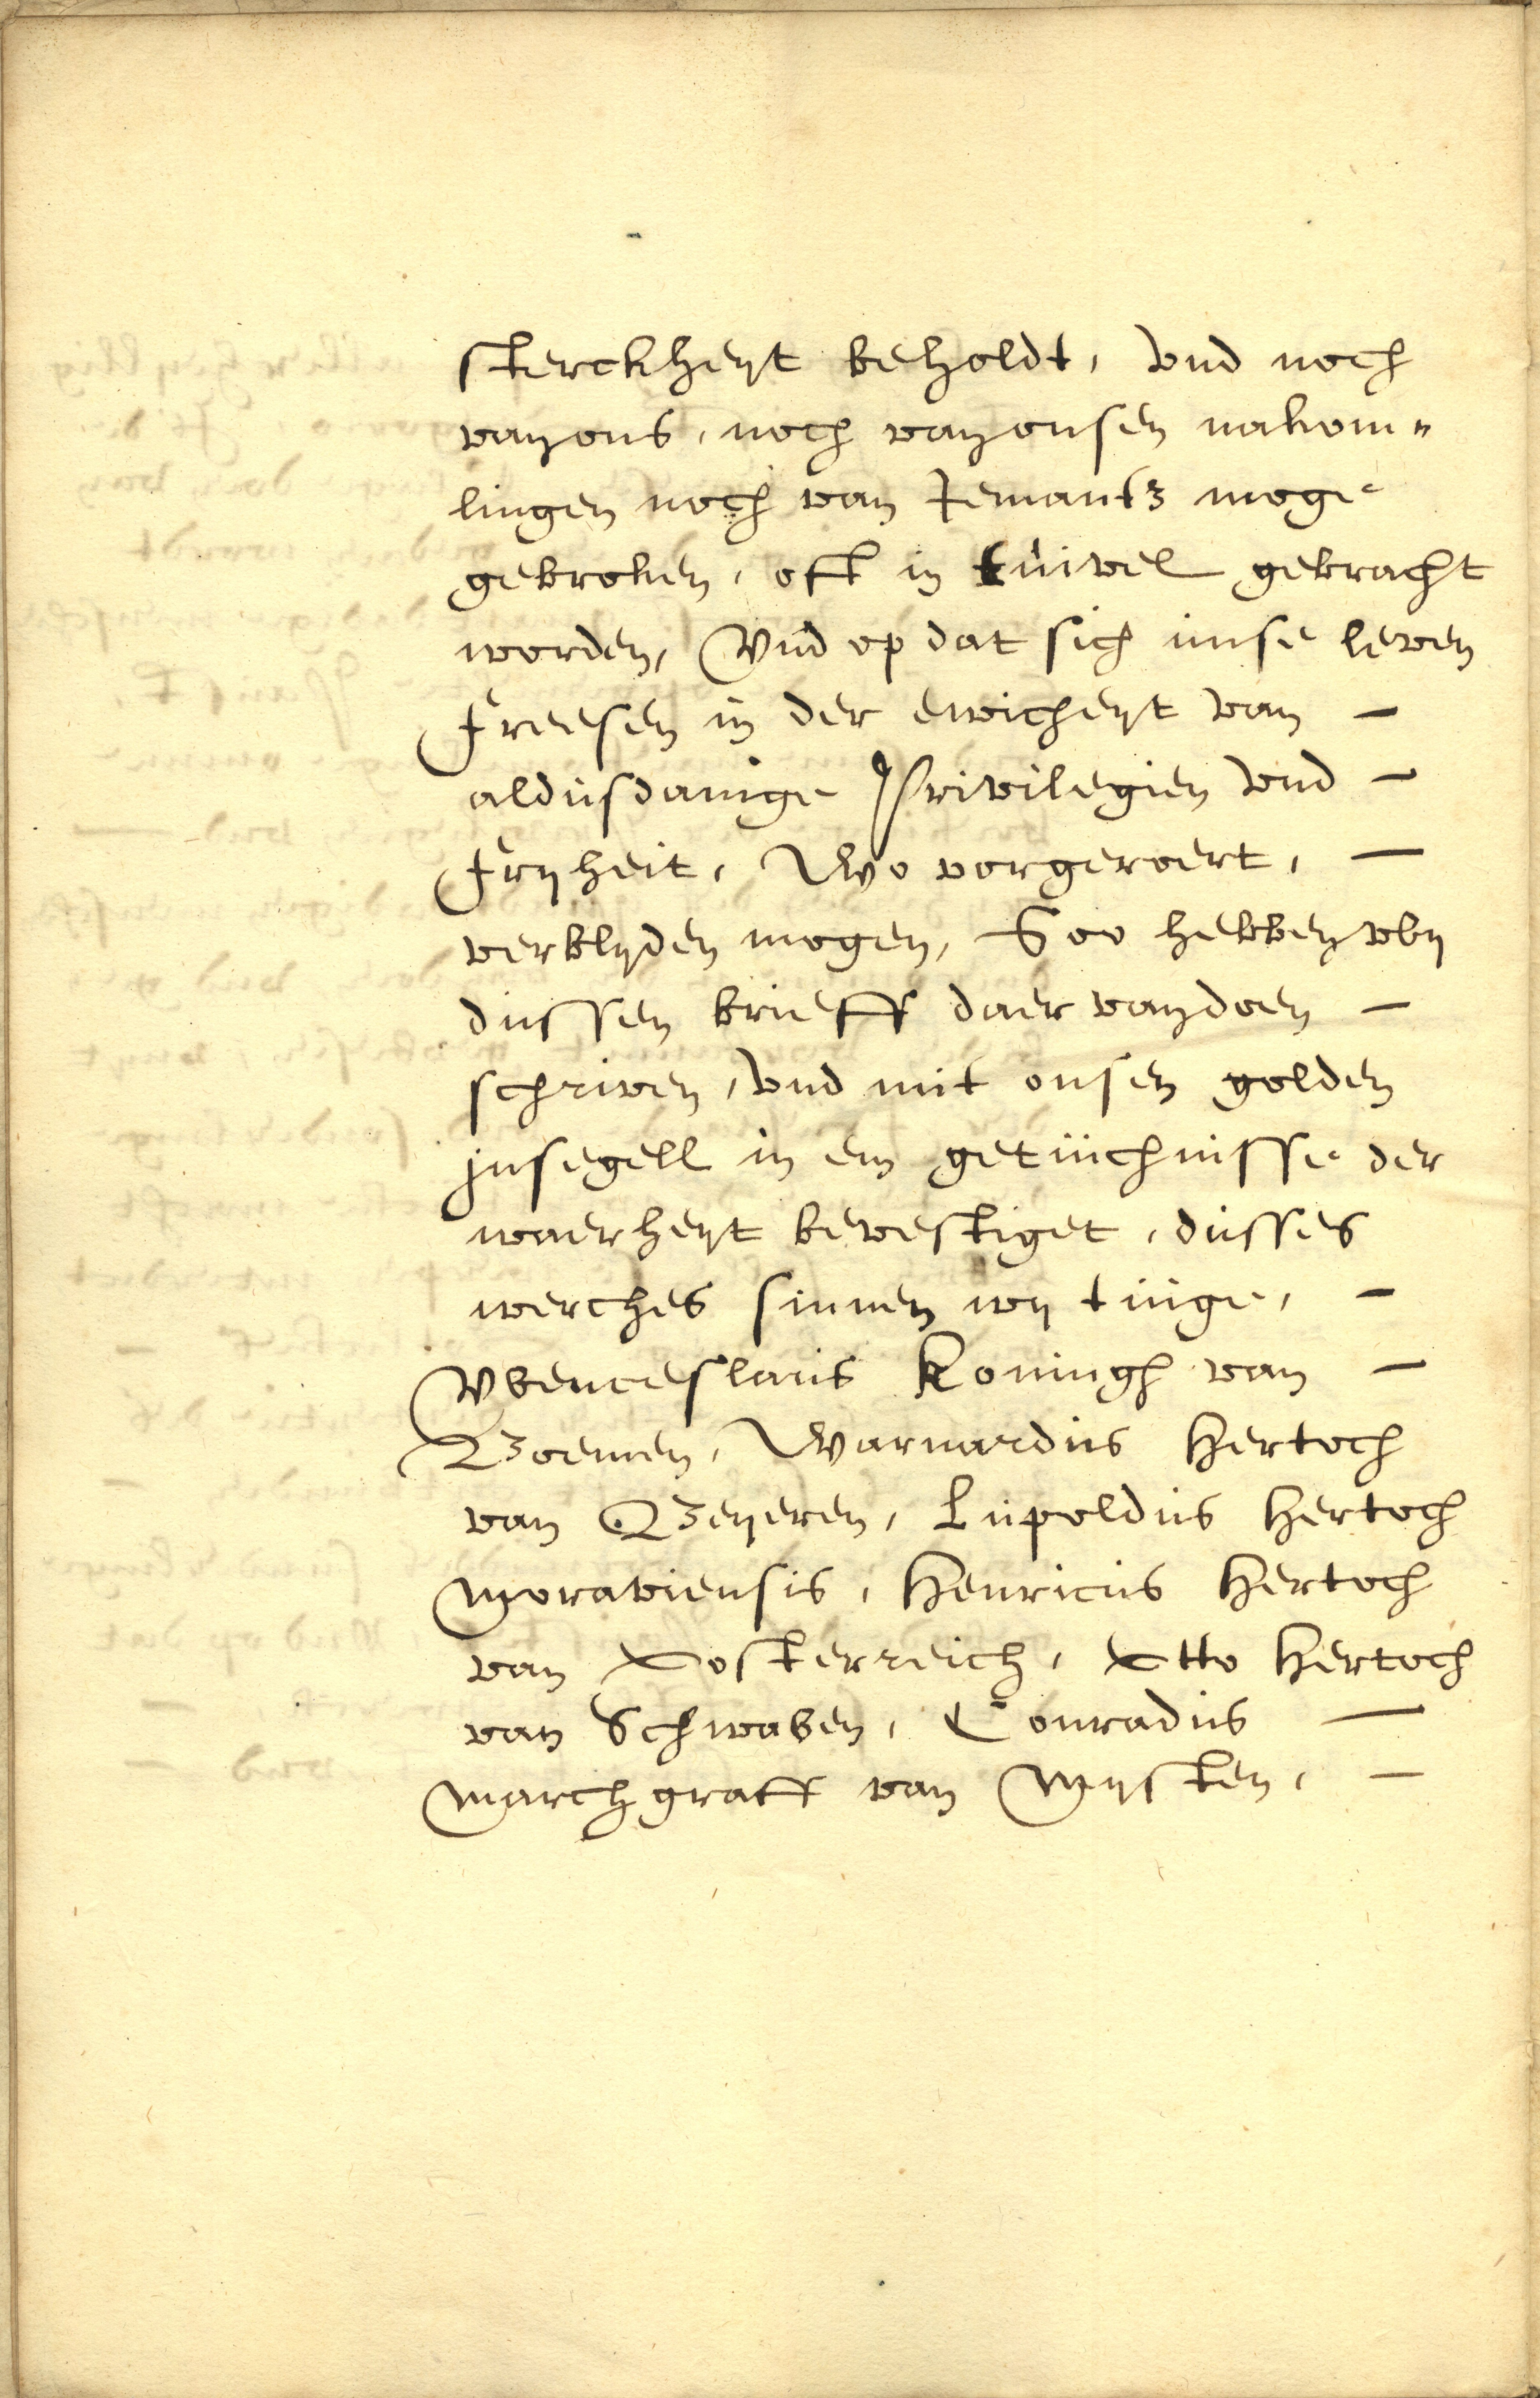 sterckheyt beholdt, vnd noch
van ons, noch van onsen nakom„
lingen noch van Jemantz moge
gebroken, oft in tuivel gebracht
worden, Vnd op dat sich unse leven
Freesen in der ewicheyt van –
aldusdanige Privilegien vnd –
Fryheit, Wo vorgeroert, –
verblyden mogen, Soo hebben wy
dussen brieff daer van doen –
schriven, vnd mit onsen golden
jnsegell in em getuchnisse der
waerheyt bevestiget, dusses
werches sinnen wy tuge, –
Wenceslaus Koningh van –
Boemen, Warnardus Hertoch
van Beyeren, Lupoldus Hertoch
Moraviensis, Henricus Hertoch
van Oosterreich, Otto Hertoch
van Schwaben, Conradus –
Marchgraff van Mysten, –